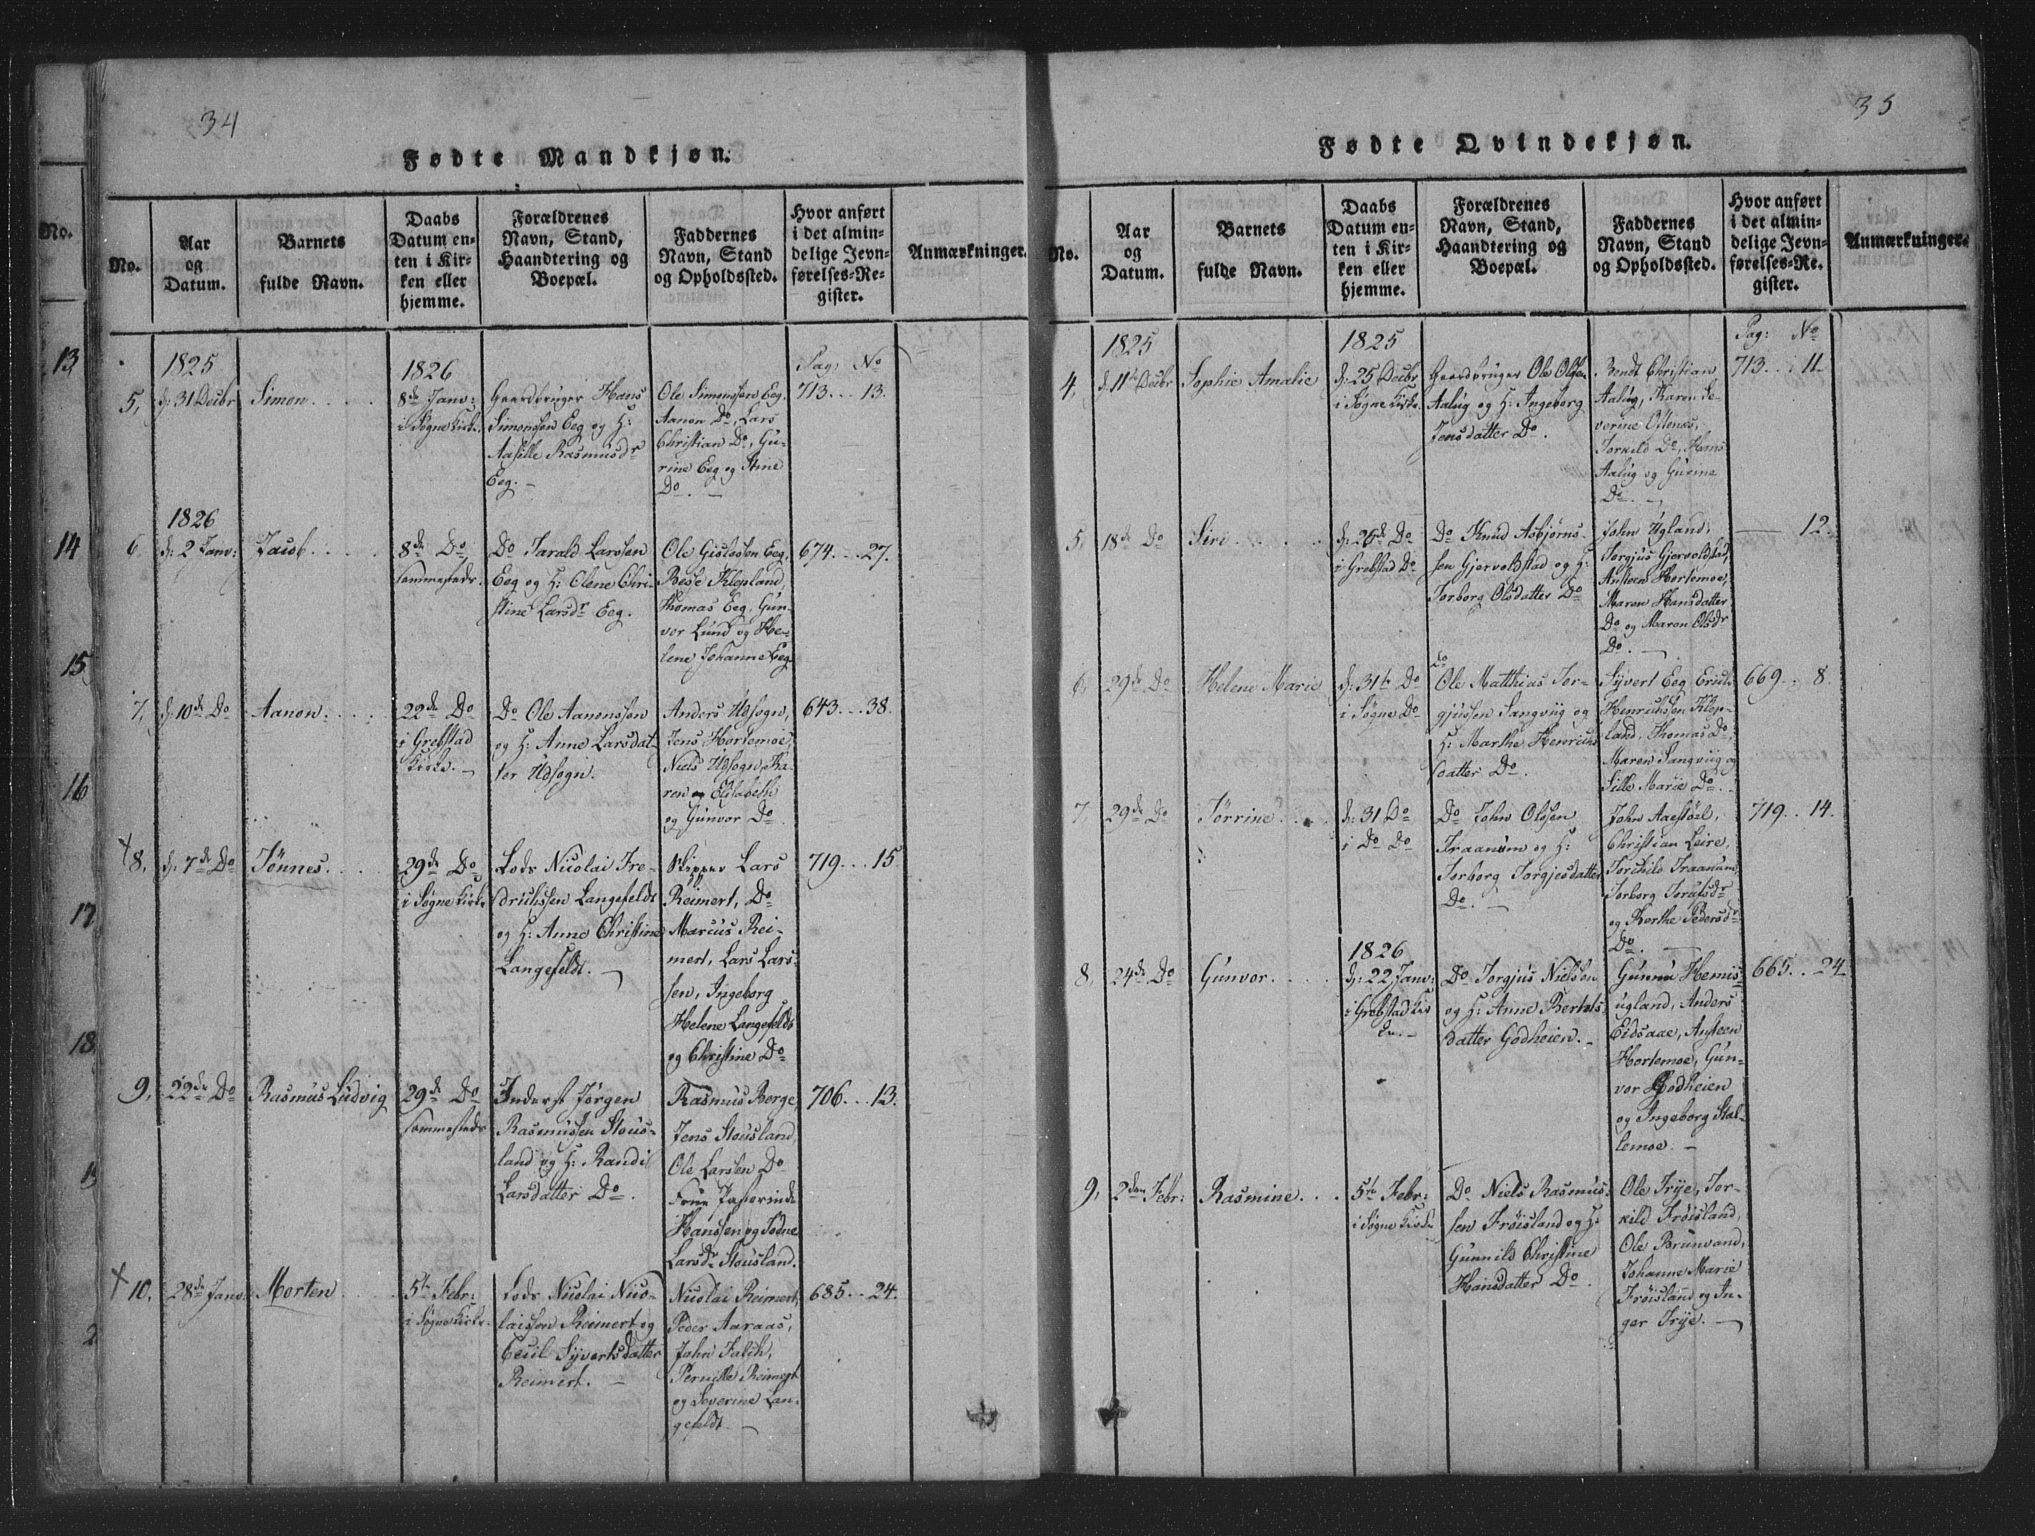 34
Fødte Mandkjøn.
No.
Aar
og
Datum.
Barnets
fulde Navn.
Daabs
Datum en-
ten i Kir-
ken eller
hjemme.
Forældrenes
Navn, Stand,
Haandtering og
Boepæl.
Faddernes
Navn, Stand
og Opholdssted.
Hvor anført
i det almin-
delige Jevn-
førelses-Re-
gister.
Anmærkninger.
Pag: No
1825
5, d: 31 Decbr
Simon
1826
8de Janv:
i Søgne Kirke.
Gaardbruger Hans
Simonsen Eeg og H:
Rasmusdr
Eeg.
Ole Simonssen Eeg,
Aanon Do, Lars
Christian Do, Gu-
rine Eeg og Anne
Do.
713 . . . 13.
1826
6, d: 2 Janv:
Jacob
8de Do
sammesteds.
Do Tarald Larssen
Eeg og H: Olene Chri-
stine Larsdr Eeg.
Ole Gislessen Eeg,
Klepland,
Thomas Eeg, Gun-
vor Lund og He-
lene Johanne Eeg.
674 . . . 27.
7, d: 10de Do
Aanon
22de Do
i Grebstad
Kirke.
Do Ole Aanonssen
og H: Anne Larsdat-
ter Udsogn.
Anders Udsogn,
Jens Hortemoe,
Niels Udsogn, Ka-
ren og Elisabeth
og Gunvor Do
643 . . . 38.
+8, d: 7de Do
Tönnes
29de Do
i Søgne Kirke
Lods Nicolai Fre-
drichssen Langefeldt
og H: Anne Christine
Langefeldt.
Skipper Lars
Reimert, Do
Marcus Rei-
mert, Lars Lars-
sen, Ingeborg
Helene Langefeldt
og Christine Do
719 . . . 15
9, 22de Do
Rasmus Ludvig
29de Do
sammesteds
Inderst Jörgen
Rasmussen Stous-
land og H: Randi
Larsdatter Do.
Rasmus Berge,
Jens Stousland,
Ole Larsen Do
Hanssen og
Larsdr Stousland.
706 . . . 13.
+10, 28de Janv:
Morten
5te Febr:
i Søgne Kirke.
Lods Nicolai Nico-
laissen Reimert og
Cecil Syvertsdatter
Reimert.
Nicolai Reimert,
Peder Aaraas,
John Falch,
Pernille Reimert
og Severine Lan-
gefeldt.
685 . . 24.
35
Fødte Qvindekjøn.
No.
Aar
og
Datum.
Barnets
fulde Navn.
Daabs
Datum en-
ten i Kir-
ken eller
hjemme.
Forældrenes
Navn, Stand,
Haandtering og
Boepæl.
Faddernes
Navn, Stand
og Opholdssted.
Hvor anført
i det almin-
delige Jevn-
førelses-Re-
gister.
Anmærkninger.
Pag: No
1825
4, d: 11te Decbr
Sophie Amalie
1825
d: 25 Decbr
i Søgne Kirke.
Gaardbruger Ole Olsen
Aalug og H: Ingeborg
Jensdatter Do.
Bendt Christian
Aalug, Karen Se-
verine Ollenæs,
Torkild Do, Hans
Aalug og Gurine
Do.
713 . . . 11.
5, 18de Do
Siri
d: 26de Do
i Grebstad Do
Do Knud Asbjørns-
sen Gjervoldstad og H:
Torborg Olsdatter Do
John Ugland,
Torgjus Gjervoldstad,
Austeen Hortemoe,
Maren Hansdatter
Do og Maren Olsdr
Do.
— 12.
6, 29de Do
Helene Marie
d: 31te Do
i Søgne Do
Do
Ole Matthias Tor-
gjussen Langviig og
H: Marthe Henrichs
datter Do.
Syvert Eeg,
Henrichssen Klep-
land, Thomas Do,
Maren Langviig og
Sille Marie Do.
669 . . 8.
7, 29de Do
Torrine
d: 31 Do
i Do Do
Do John Olsen
Traanum og H:
Torborg Torgjesdatter
Do.
John Aaestöel,
Christian Leire,
Torchild Traanum,
Torborg
og Berthe Pedersdr
Do.
719 . . 14.
8, 24de Do
Gunvor
1826
d: 22 Janv:
i Grebstad Kir
ke.
Do Torgjus Nielsen
og H: Anne Bertels-
datter Godheien.
Gunnu Hemis-
ugland, Anders
Eidsaae, Austeen
Hortemoe, Gun-
vor Godheien
og Ingeborg Stal-
lemoe.
665 . . 24
9, 2den Febr:
Rasmine
5te Febr:
i Søgne Kirke
Do Niels Rasmus-
sen Fröisland og H:
Gunnild Christine
Hansdatter Do.
Ole Trye, Tor-
kild Fröisland,
Ole Brunvand,
Johanne Marie
Fröisland og In-
ger Trye.
No.
13
14
15
16
17
18